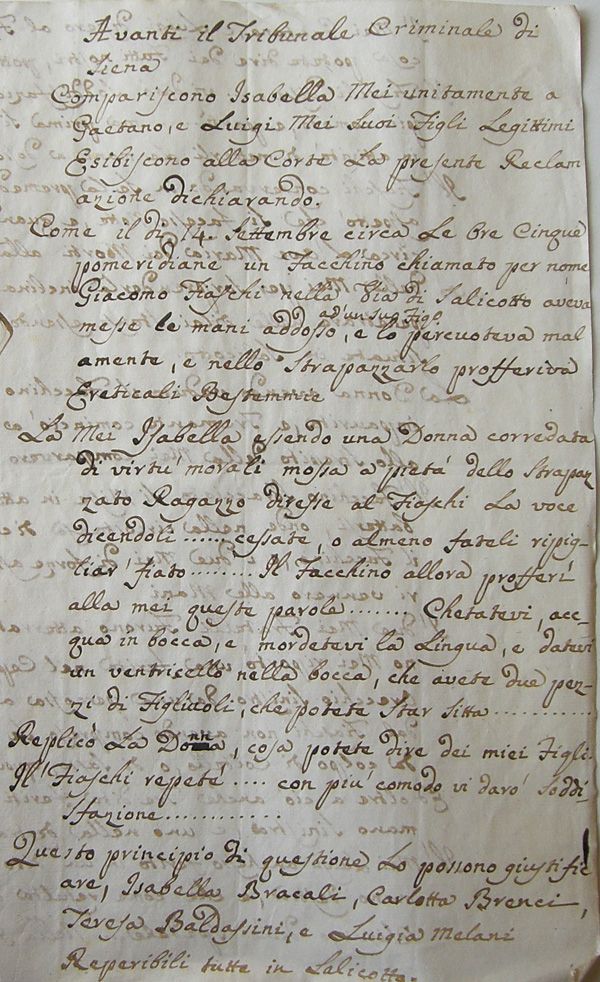 Avanti il Tribunale Criminale di
Siena
Compariscono Isabella Mei unitamente a
Gaetano, e Luigi Mei Suoi Figli Legittimi
Esibiscono alla Corte La presente Reclam
azione dichiarando.
Come il dì 14. Settembre circa Le Ore Cinque
pomeridiane un Facchino chiamato per nome
Giacomo Fiaschi nella Via di Salicotto aveva
messe le mani addosso ad'un suo Figo, e lo percuoteva mal
amente, e nello Strapazzarlo profferiva
Ereticali Bestemmie
La Mei Isabella essendo una Donna corredata
di virtu' morali mossa a pietá dello Strapaz
zato Ragazzo diresse al Fiaschi La voce
dicendoli ...... cessate, o almeno fateli ripig-
liar' fiato ........ Il Facchino allora profferí
alla mei queste parole ....... Chetatevi, acc-
qua in bocca, e mordetevi la Lingua, e datevi
un ventricello nella bocca, che avete due pez-
zi di Figliuoli, che potete Star Sitta ............
Replicó La Donna, cosa potete dire dei miei Figli.
Il Fiaschi repeté .... con piu' comodo vi daró Soddi-
sfazione .............
Questo principio di questione Lo possono giustific
are, Isabella Bracali, Carlotta Brenci,
Teresa Baldassini, e Luigia Melani
Reperibili tutte in Salicotto.